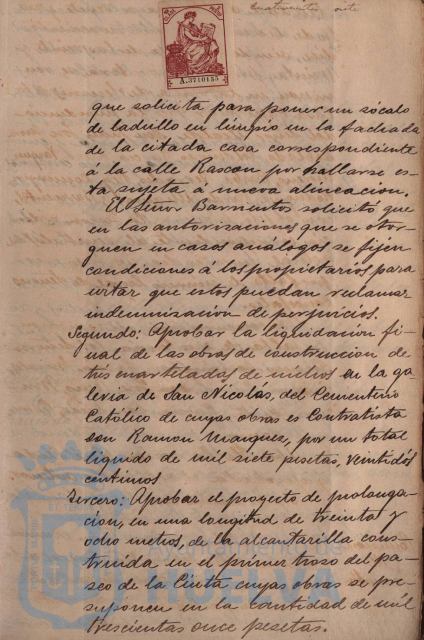 A.3710155
que solicita para poner un zócalo
de ladrillo en limpio en la fachada
de la citada casa correspondiente
á la calle Rascon por hallarse es-
ta sujeta á nueva alineacion.
El Señor Barrientos solicitó que
en las autorizaciones que se otor-
guen en casos análogos se fijen
condiciones á los propietarios para
evitar que estos puedan reclamar
indemnizacion de perjuicios.
Segundo: Aprobar la liquidacion fi-
nal de las obras de construccion de
tres cuarteladas de nichos en la ga-
leria de San Nicolás, del Cementerio
Católico de cuyas obras es Contratista
Don Ramon Marquez, por un total
liquido de mil siete pesetas, veintidos
centimos
Tercero: Aprobar el proyecto de prolonga-
cion, en una longitud de treinta y
ocho metros, de la alcantarilla cons-
truida en el primer trozo del pa-
seo de la Cinta cuyas obras se pre-
suponen en la cantidad de mil
trescientas once pesetas.